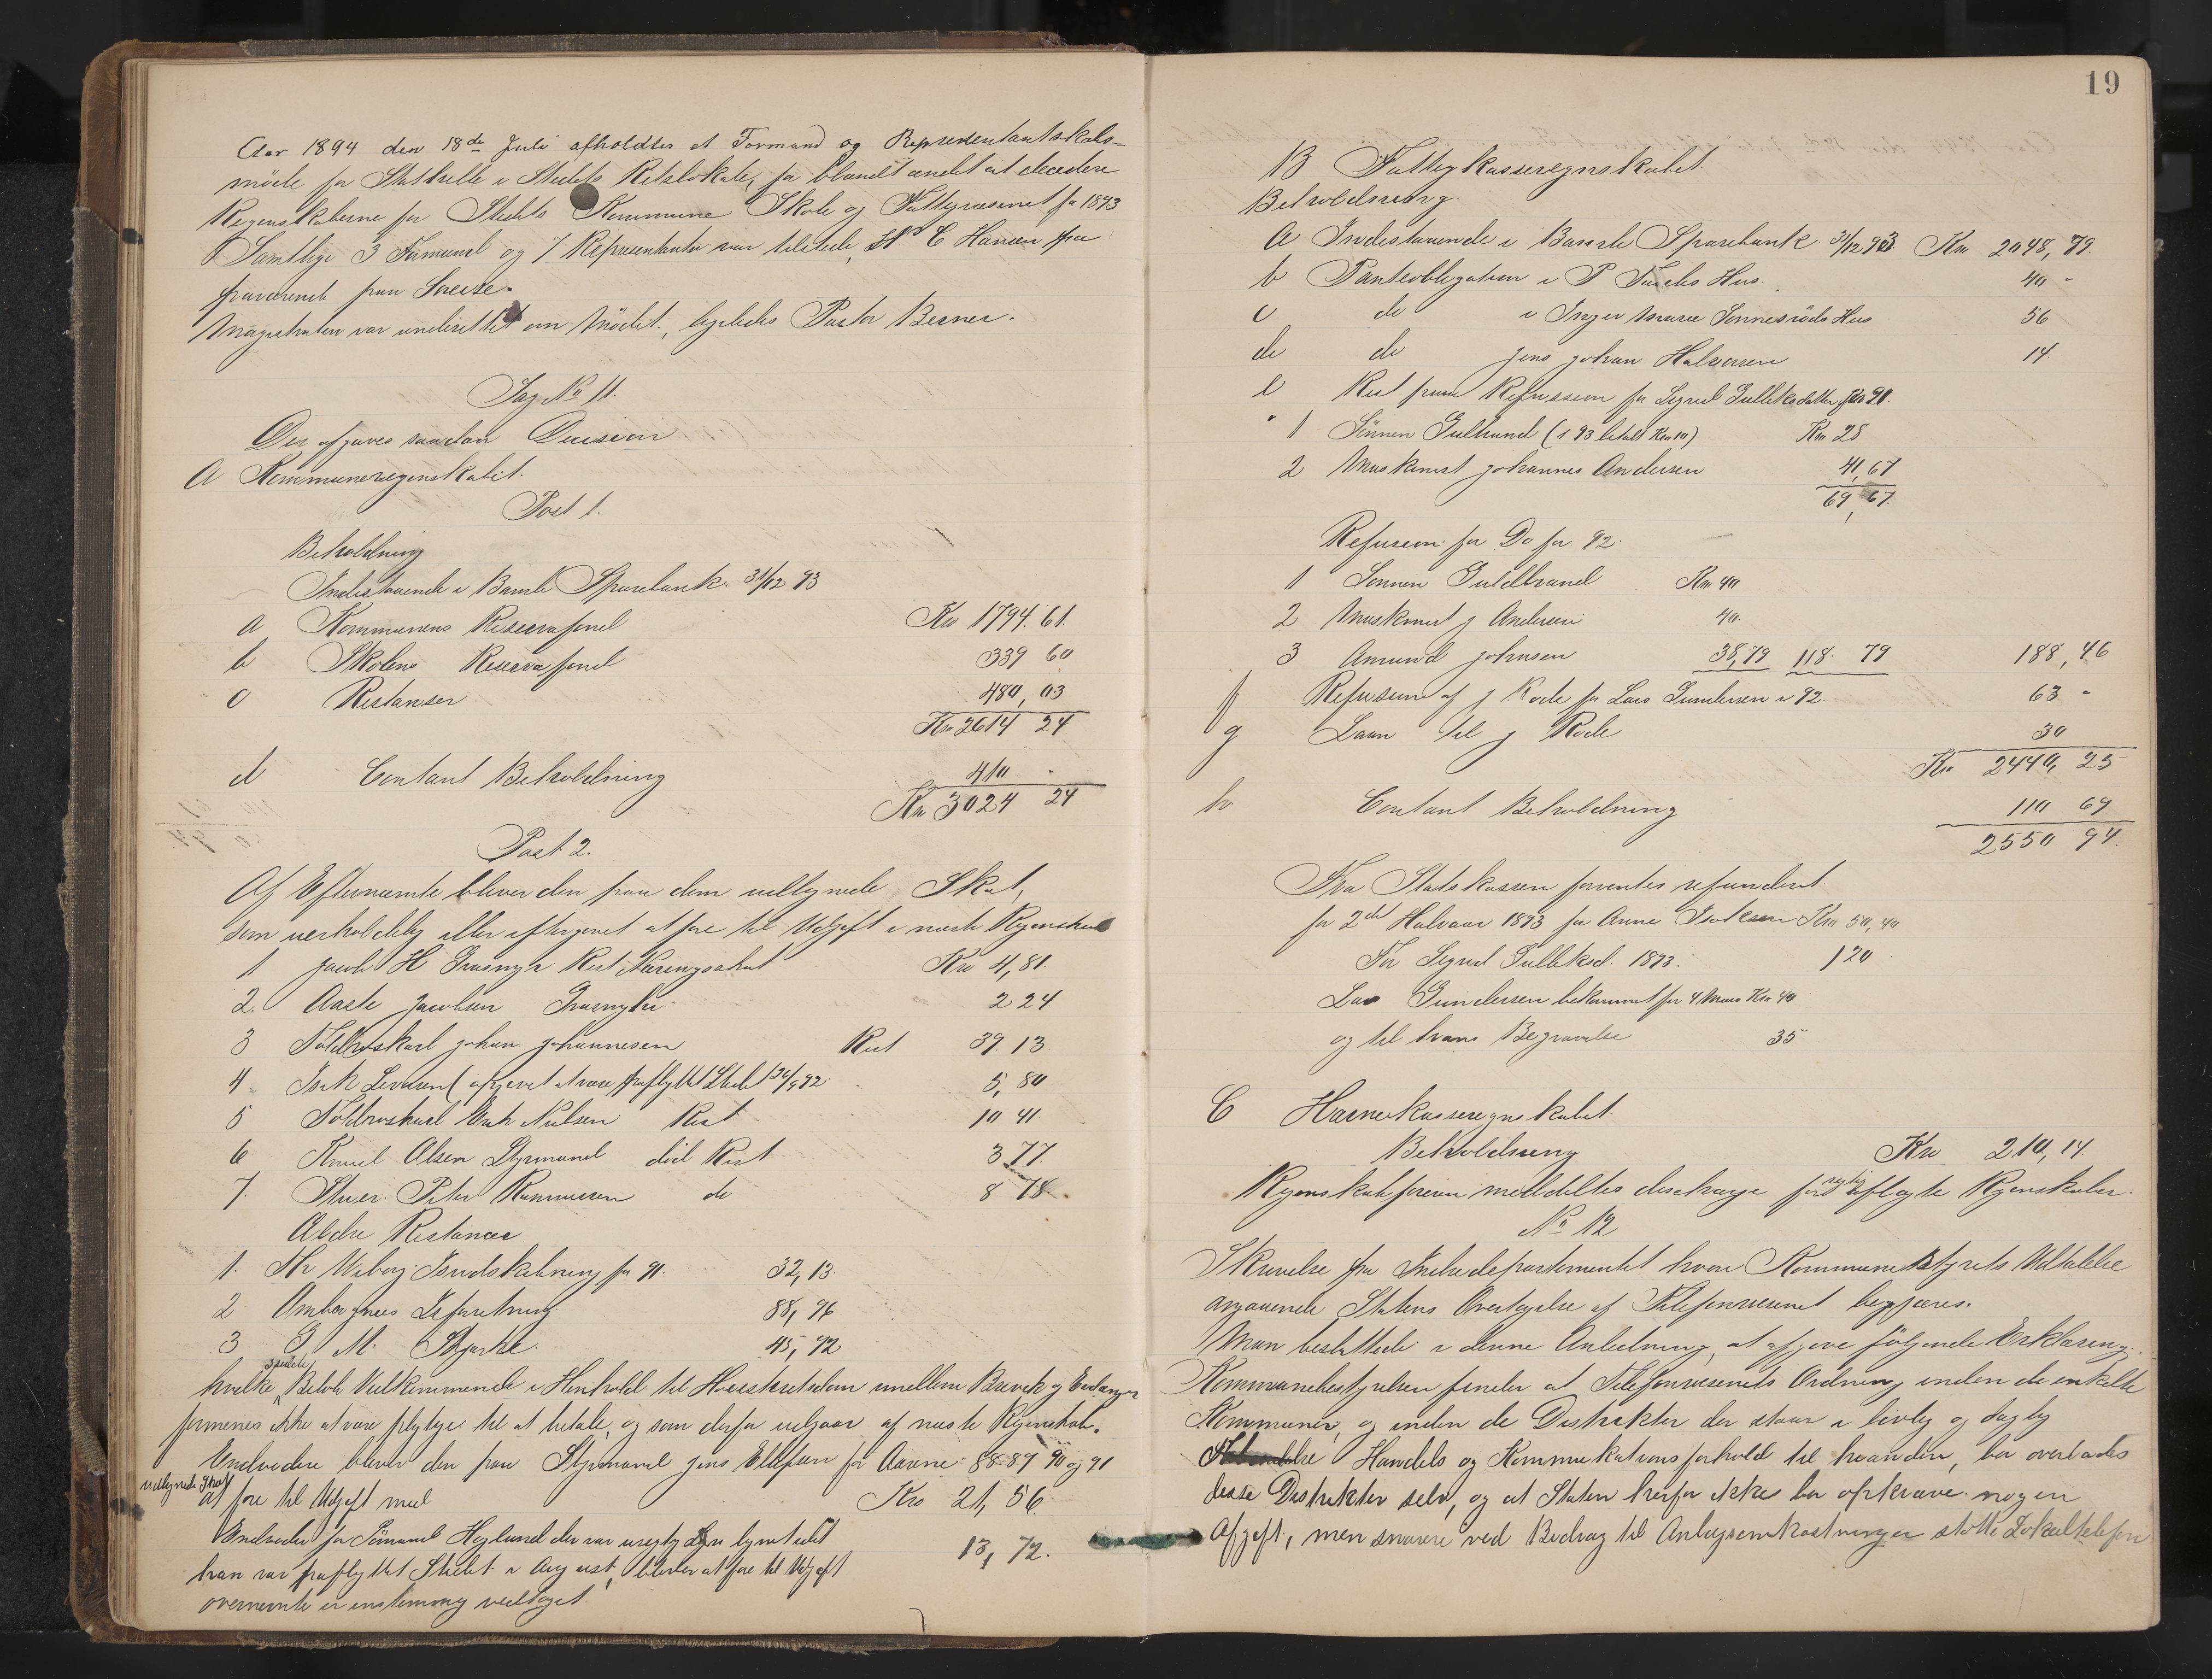 Aar 1894 den 18de Juli afholdtes et Formand og Repræsentantskabs-
möde for Stathelle i Stedets Retslokale, for blandt andet at decidere
Regenskaberne for Stedets Kommune Skole og Fattigvæsenet for 1893
Samtlige 3 Formænd og 7 Repræsentanter var tilstede, H C Hansen fra
fraværende paa Sreise.
Magistraten var underrettet om Mödet, ligeledes Pastor Berner.
Sag No 11.
Der afgaves saadan Decision
A Kommuneregenskabet.
Post 1.
Beholdning
Indestaaende i Bamle Sparebank 31/12 93
a Kommunens Reservefond Kro 1794.61.
b Skolens Reservefond 339 60
c Restanser 480,03
Kr 2614 24
d Contant Beholdning 410 -
Kr 3024 24
Post 2.
Af Efternævnte bliver den paa dem udlignede Skat,
som uerholdelig eller eftergivet at före til Udgift i næste Regenskab
1 Jacob H Grasmyr Rest Næringsskat Kro 4,81.
2. Aaste Jacobsen Grasmyhr 2 24
3 Toldroskarl Johan Johannesen Rest 39 13
4 Isak Levorsen (opgivet at være fraflyttet Stedet 30/9 92 5,80
5 Toldroskarl Erik Nielsen Rest 10 41
6 Knud Olsen Styrmand död Rest 3 77.
7. Stuer. Peter Rasmussen do 8 78.
Ældre Restancer
1. Th Wiborg Isudskibning for 91. 32,13.
2 Ombergnes Isforretning 88,96
3 G M. Skjerke 45,92
hvilke 3 sidste Belöb Vedkommende i Henhold til Höiesteretsdom imellem Brevik og Eidanger
formenes ikke at være pligtige til at betale, og som derfor udgaar af næste Regenskab.
Endvidere bliver den paa Styrmand Jens Ellefsen for Aarene 88-89 90 og 91
udlignede Skat at före til Udgift med Kro 21,56.
Endvidere for Sömand Hoglund der var urigtig lignet idet 13,72.
han var fraflyttet Stedet i August, bliver at före til Udgift
ovennevnte er enstemmig vedtaget
19
B Fattigkasseregnskabet.
Beholdning.
A Indestaaende i Bamle Sparebank 31/12 93 Kro 2048,79.
b Panteobligation i P Fuchs Hus. 40 -
c do i Inger Marie Sönnesröds Hus 56
d do Jens Johan Halvorsen 14.
e Rest paa Refussion for Sigrid Gulleksdatter for 91.
" 1 Sönnen Gulbrand (i 93 betalt Kro 10) Kro 28
2 Maskinist Johannes Andersen 41,67
69,67.
Refusion for Do for 92.
1 Sönnen Guldbrand Kro 40
2 Maskinist J Andersen 40.
3 Amund Johnsen 38,79 118. 79 188,46
f Refusion af J Rode for Lars Gundersen i 92. 63 -
g Laan til J Rode 30
Kr 2440,25
h Contant Beholdning 110 69
2550 94.
Fra Statskassen forventes refunderet
for 2det Halvaar 1893 for Anne Isaksen Kro 50,40
For Sigrid Gulleksd. 1893. 120
Lars Gundersen bekommet for 4 Maan Kro 40
og til hans Begravelse 35
C Havnekasseregnskabet.
Beholdning Kro 210,14.
Regenskabsföreren meddeltes decharge for rigtig aflagte Regenskaber.
No 12
Skrivelse fra Indredepartementet hvori Kommunebestyrets Udtalelse
angaaende Statens Overtagelse af Telefonvæsenet begjæres.
Man besluttede i denne Anledning, at afgive fölgende Erklæring.
Kommunebestyrelsen finder at Telefonvæsenets Ordning inden de enkelte
Kommuner, og inden de Distrikter der staar i livlig og daglig
Handels og Kommunikationsforhold til hvandre, bör overlades
disse Distrikter selv, og at Staten herfor ikke bör opkræve nogen
Afgift, men snarere ved Bidrag til Anlægsomkostninger stötte Lokaltelefon